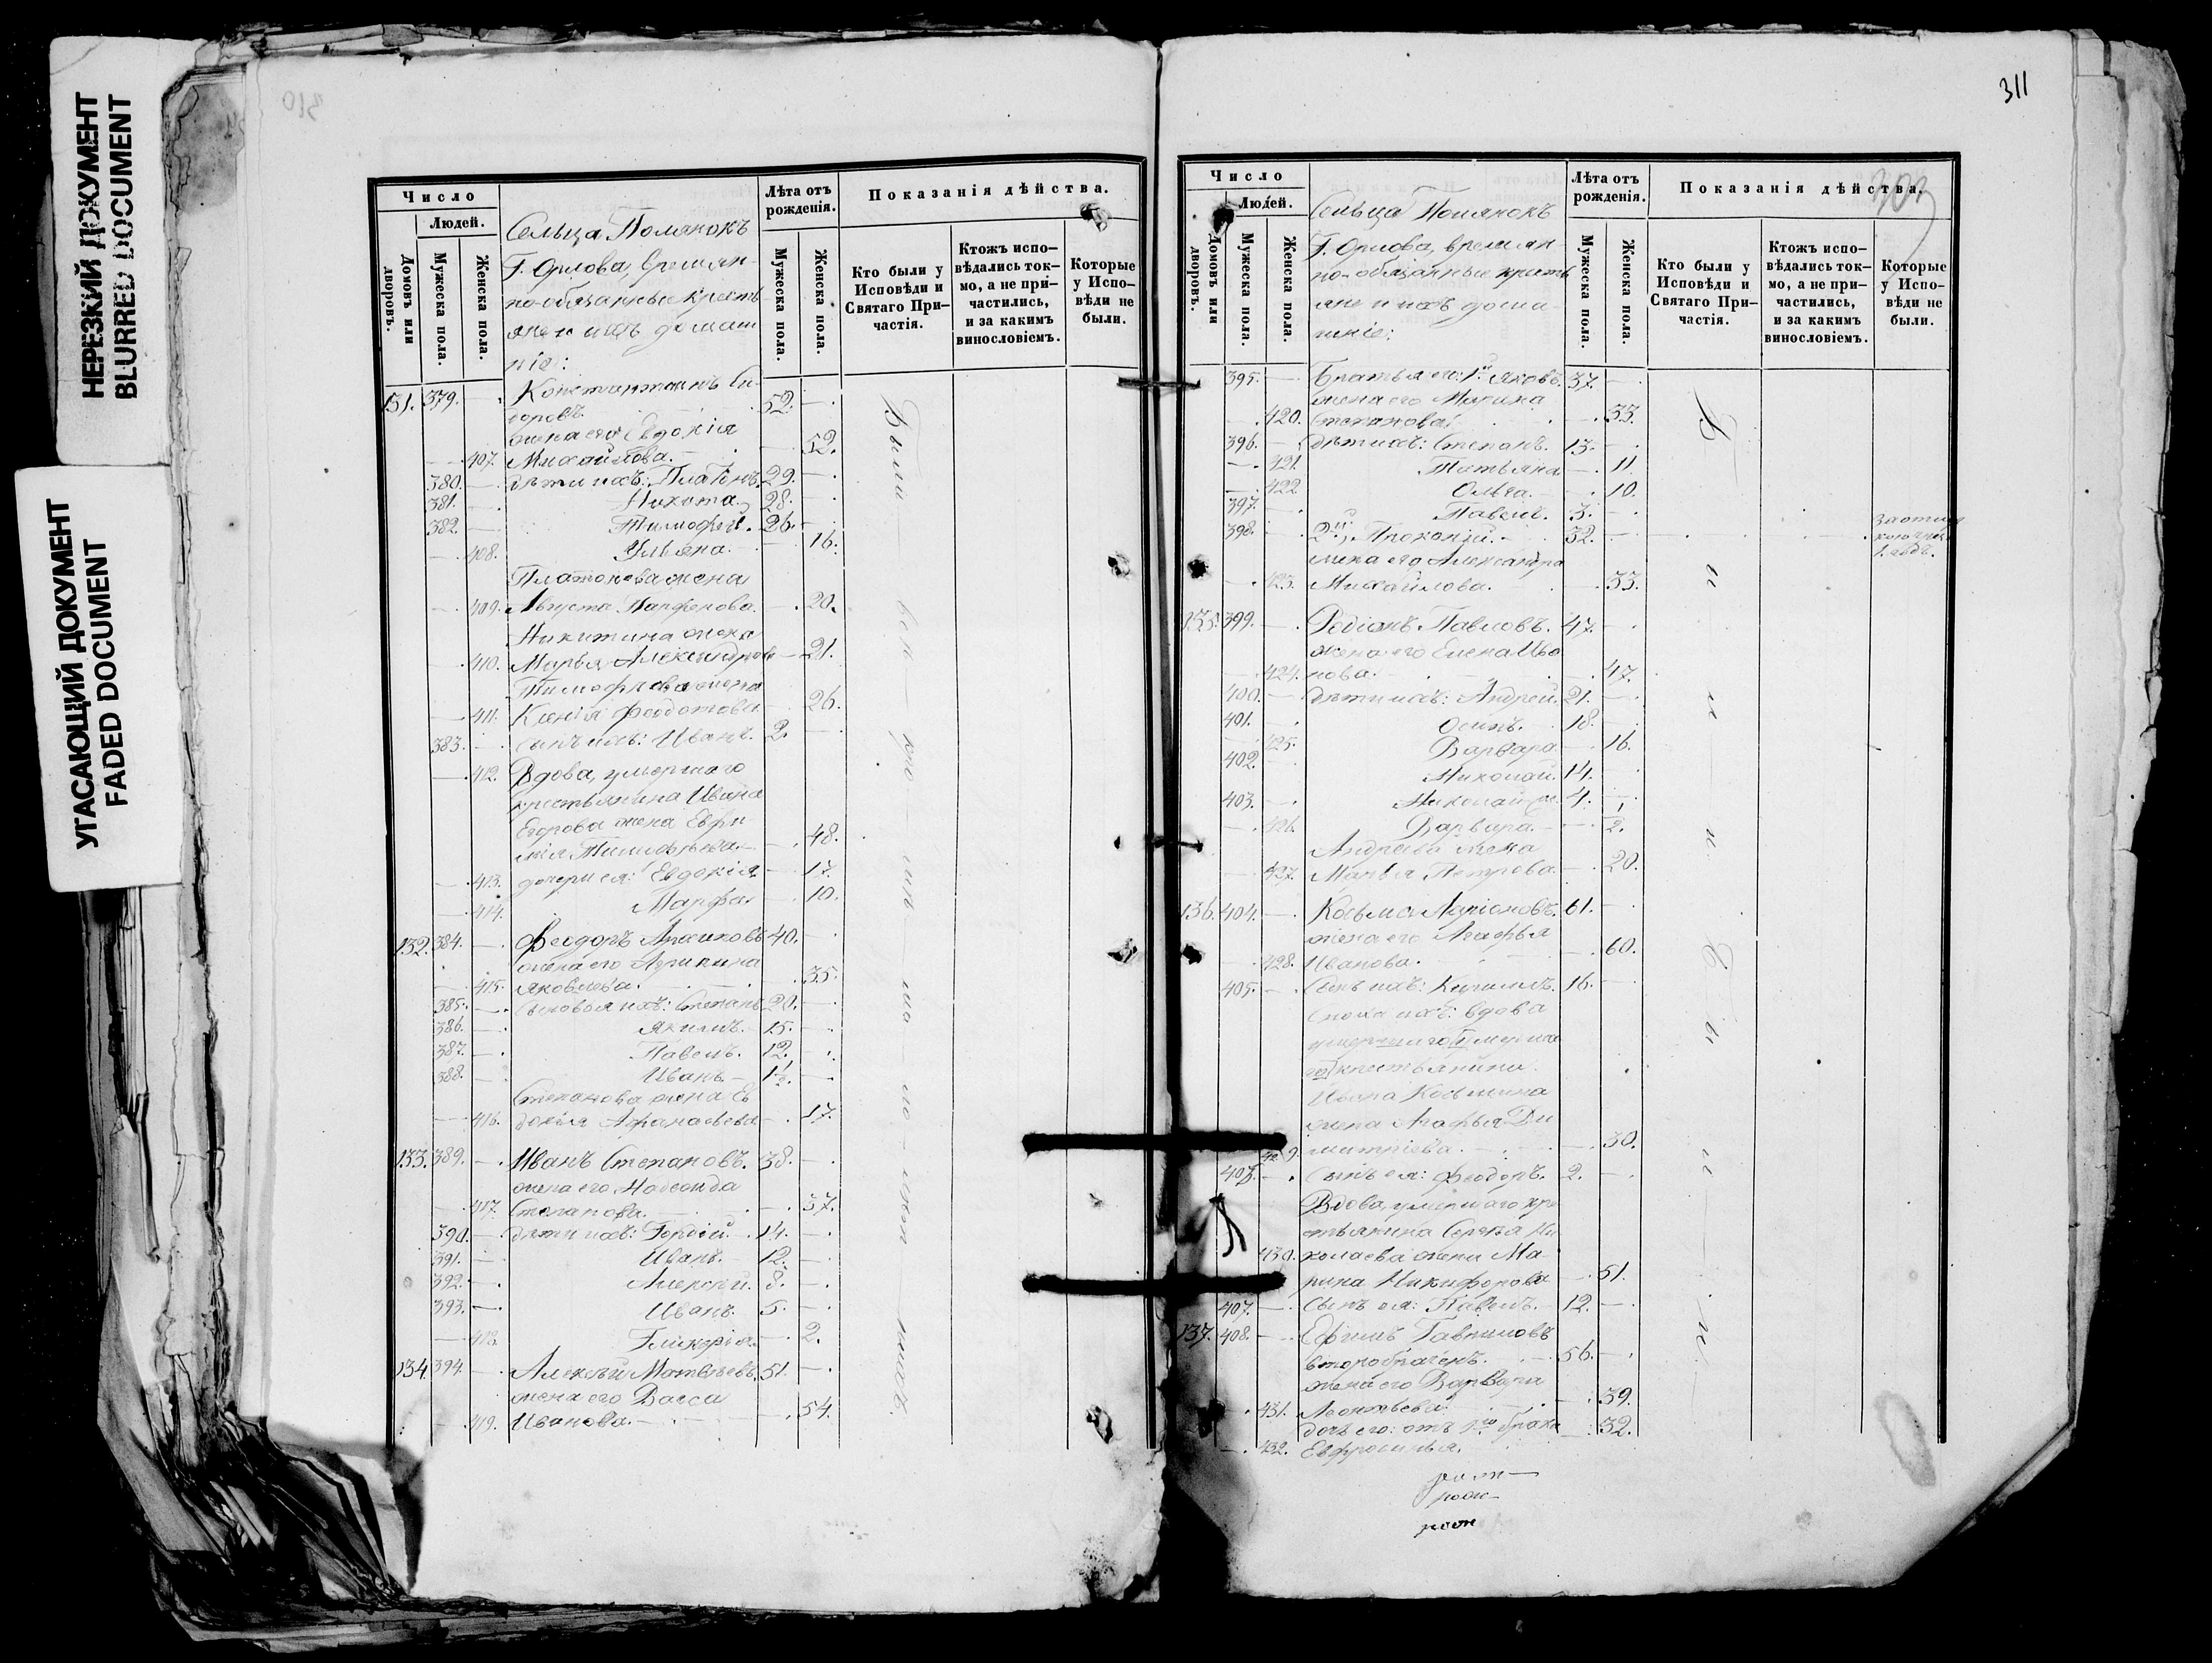 НЕРЕЗКИЙ ДОКУМЕНТ
BLURRED DOCUMENT
УГАСАЮЩИЙ ДОКУМЕНТ
FADED DOCUMENT
310
Число
Людей.
Домовъ или дворовъ.
Мужеска пола.
Женска пола.
Сельца Полянокъ
Г. Орлова, времян-
но-обязанные кресть
яне и ихъ домаш
ніе:
Лѣта отъ рожденія.
Мужеска пола.
Женска пола.
Показанія дѣйства.
Кто были у Исповѣди и Святаго При-частія.
Ктожъ испо-вѣдались ток-мо, а не при-частились, и за какимъ винословіемъ.
Которые у Испо-вѣди не были.
131. 379. Константинъ Си
доровъ. 52.
жена его Евдокія
407. Михайлова. 52.
380. дѣти ихъ: Платонъ. 29.
381. Никита. 28.
382. Тимофей. 26.
408. Ульяна. 16.
Платонова жена
409. Августа Парфенова. 20.
Никитина жена
410. Марья Александрова 21.
Тимофеева жена
411. Ксенія Феодотова. 26.
383. сынъ ихъ: Иванъ. 2.
412. Вдова, умершаго
крестьянина Ивана
Егорова жена Евфи
мія Тимофѣева. 48.
413. дочери ея: Евдокія 17.
414. Марфа. 10.
132. 384. Феодоръ Архиповъ 40.
жена его Агрипина
415. Яковлева. 35.
385. Сыновья ихъ: Степанъ 20.
386. Якимъ. 15.
387. Павелъ. 12.
388. Иванъ. 1½.
Степанова жена Ев
416. докія Афанасьева 17.
133. 389. Иванъ Степановъ. 38.
жена его
417. Степанова. 37.
390. дѣти ихъ: Гордій. 14.
391. Иванъ. 12.
392. Алексѣй. 8.
393. Иванъ. 5.
418. Гликерія. 2.
134. 394. Алексѣй Матвѣевъ. 51.
жена его Васса
419. Иванова. 54.
Были
311
303
Число
Людей.
Домовъ или дворовъ.
Мужеска пола.
Женска пола.
Сельца Полянокъ
Г. Орлова, времян-
но-обязанные кресть
яне и ихъ дома-
шніе:
Лѣта отъ рожденія.
Мужеска пола.
Женска пола.
Показанія дѣйства.
Кто были у Исповѣди и Святаго При-частія.
Ктожъ испо-вѣдались ток-мо, а не при-частились, и за какимъ винословіемъ.
Которые у Испо-вѣди не были.
395. Братья его: 1й Яковъ. 37.
жена его Марина
420. Степанова. 33.
396. дѣти ихъ: Степанъ. 13.
421. Татьяна 11.
422. Ольга. 10.
397. Павелъ. 3.
398. 2й, Прокопій. 32.
жена его Александра
423. Михайлова. 33.
135. 399. Родіонъ Павловъ. 47.
жена его Елена Ива
424. нова. 47.
400. дѣти ихъ: Андрей. 21.
401. Осипъ. 18.
425. Варвара. 16.
402. Николай. 14.
403. Николай 4.
426. Варвара. ½.
Андреева жена
427. Марья Петрова. 20.
136. 404. Косьма Ларіоновъ. 61.
жена его Агафья
428. Иванова. 60.
405. Сынъ ихъ: Кириллъ. 16.
Сноха ихъ: вдова
умершаго
крестьянина
Ивана Косьмина
жена Агафья Ди
429. митріева. 30.
406. Сынъ ея: Феодоръ. 2.
Вдова, умершаго кре
стьянина Сергѣя Ни
430. колаева жена Ма
рина Никифорова 51.
407. Сынъ ея: Павелъ. 12.
137. 408. Ефимъ Гавриловъ
второбраченъ. 56.
жена его Варвара
431. Леонтьева. 39.
дочь его: отъ 1го брака 32.
432. Евфросинья.